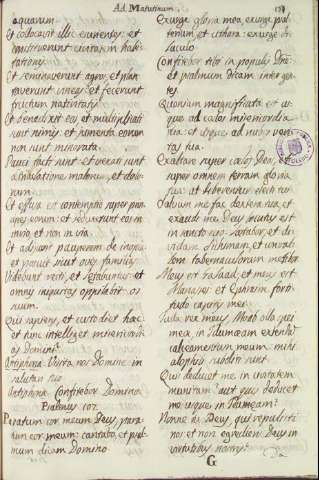 Ad Matutinum.
aquarum.
Et collocavit illic esurientes: et
constituerunt civitatem habi-
tationis
Et seminaverunt agros, et plan
taverunt vineas: et fecerunt
fructum nativitatis
Et benedixit eis, et multiplicati
sunt nimis: et jumenta eorum
non sunt minorata.
Pauci facti sunt: et vexati sunt
a tribulatione malorum, et dolo
rum.
Et effusa est contemptio super prin
cipes eorum: et
invio et non in via.
Et adjuvit pauperem de inopia
et posuit sicut oves familias
Videbunt recti, et letabuntur: et
omnis iniquitas oppilabit os
suum.
Quis sapiens, et custodiet haec:
et intelliget misericordi
as Domini?
Antiphona Visita nos Domine in
salutari tuo
Antiphona Confitebor Domino
Psalmus 107.
Paratum cor meum Deus, para
tum cor meum: cantabo, et psal-
mum dicam Domino
Exurge gloria mea, exurge psal
terium, et cithara: exurgam di
luculo
Confitebor tibi in populis Dne:
et psalmum dicam inter gen
tes.
Quoniam magnificata est us
que ad caelos misericordia
tua: et usque ad nubes veri
tas tua.
Exaltare super caelos Deus, et
super omnem terram gloria
tua: ut liberentur electi tui
Salvum me fac dextera tua, et
exaudi me: Deus locutus est
in sancto suo: Exultabo, et di-
vidam Sichimam, et conval-
lem tabernaculorum metibor
Meus est Galaad, et meus est
Manasses et Ephraim forti
tudo capitis mei.
Juda rex meus: Moab olla spei
mea, in Idumaeam extendam
calceamentum meum: mihi
alophili subditi sunt
Quis deducet me in civitatem
munitam? aut quis deducet
me usque in Idumaeam?
Nonne tu Deus, qui repulisti
nos: et non egredieris Deus in
virtutibus nostris?
G
Da